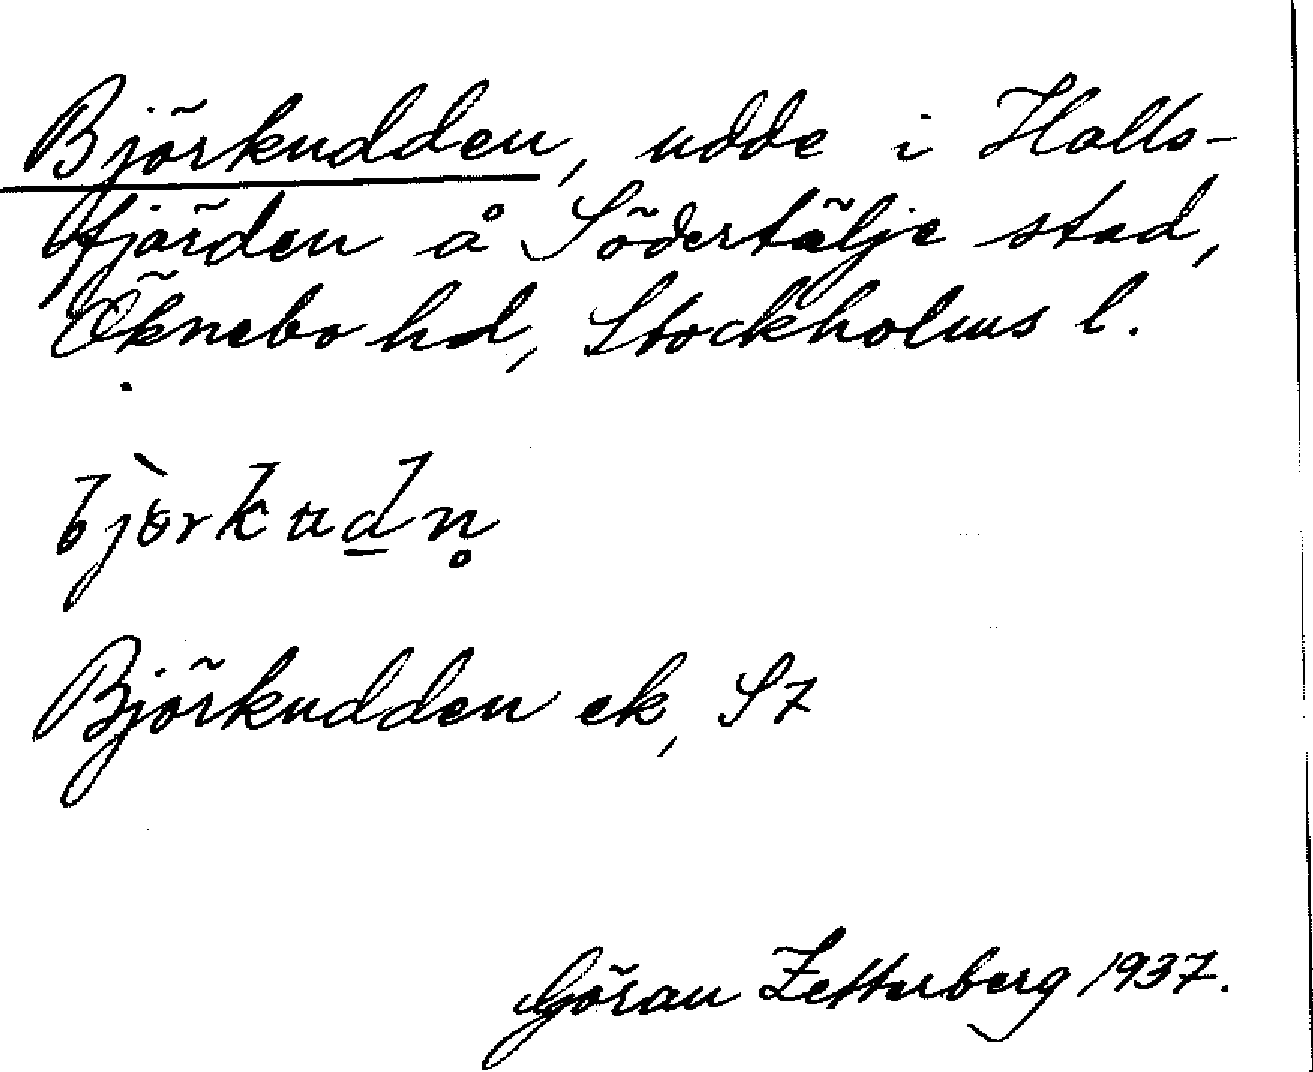 Björkudden, udde i Halls-
fjärden å Södertälje stad,
Öknebo hd, Stockholms l.
bjö̀rkud̲n̥
Björkudden ek, S7
Göran Zetterberg 1937.